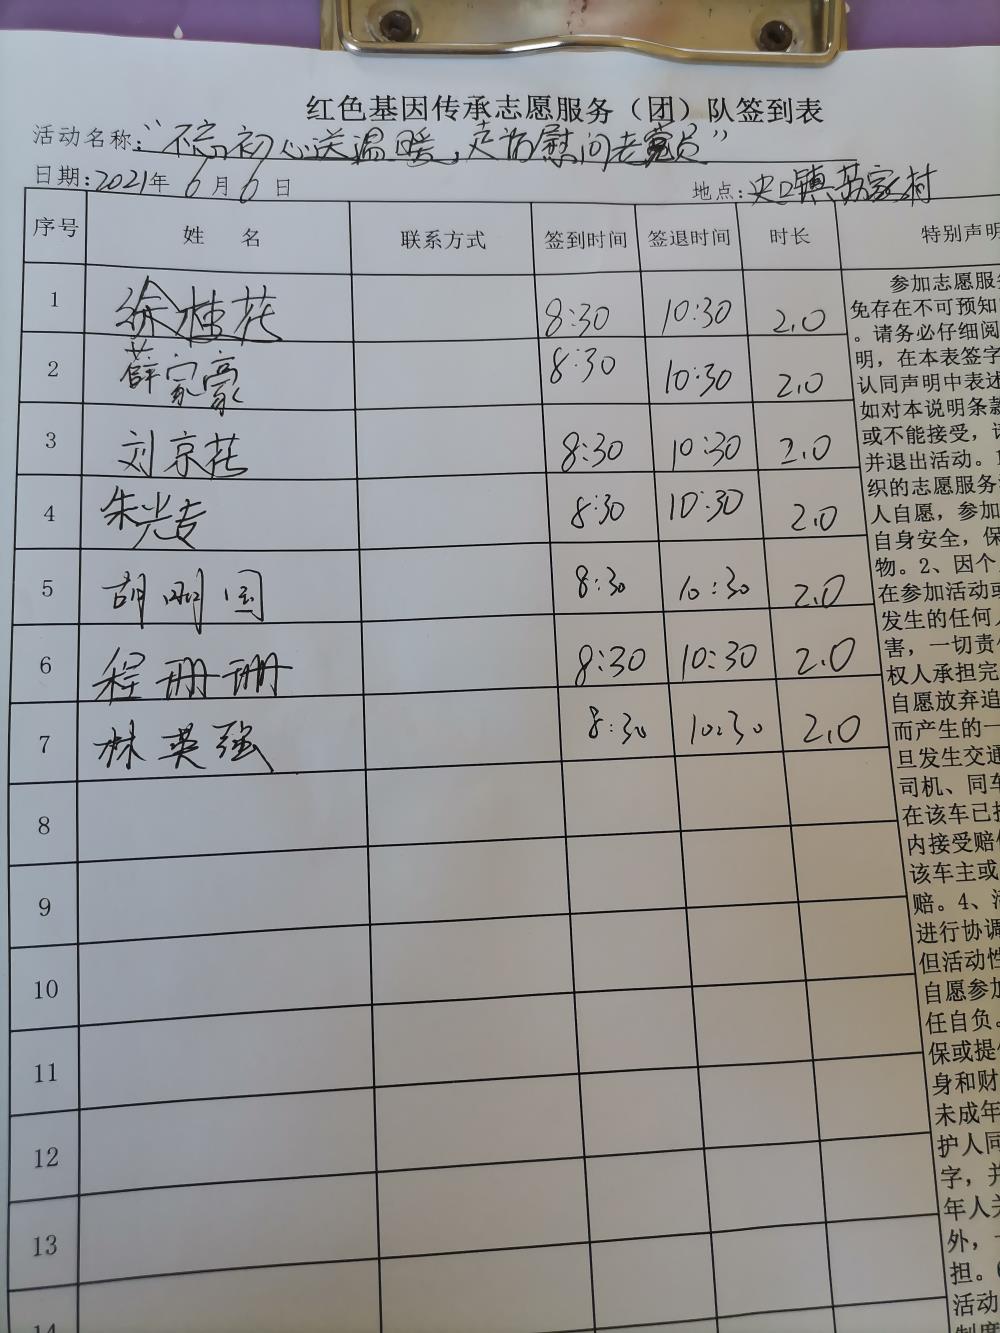 红色基因传承志愿服务（团）队签到表
活动名称："不忘初心送温暖，走访慰问老党员"
日期：2021年6月6日 地点：史口镇苏家村
序号 姓名 联系方式 签到时间 签退时间 时长 特别声明
1 徐桂花 8:30 10:30 2.0
2 薛家豪 8:30 10:30 2.0
3 刘京花 8:30 10:30 2.0
4 朱光吉 8:30 10:30 2.0
5 胡刚国 8:30 10:30 2.0
6 程珊珊 8:30 10:30 2.0
7 林英强 8:30 10:30 2.0
8
9
10
11
12
13
14
参加志愿服务
免存在不可预知
。请务必仔细阅
明，在本表签字
认同声明中表述
如对本说明条款
或不能接受，
并退出活动。1
织的志愿服务
人自愿，参加
自身安全，保
物。2、因个
在参加活动或
发生的任何人
害，一切责任
权人承担完
自愿放弃追
而产生的一
旦发生交通
司机、同车
在该车已投
内接受赔偿
该车主或
赔。4、活
进行协调
但活动性
自愿参加
任自负。
保或提供
身和财
未成年
护人同
字，并
年人关
外，一
担。6
活动
制度